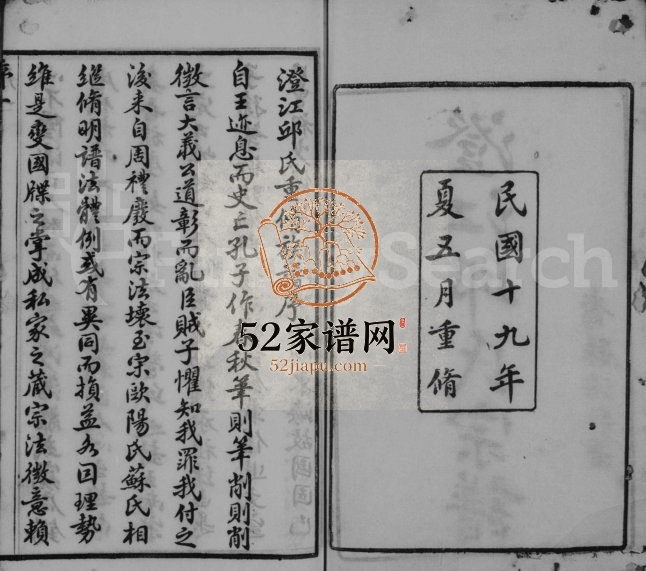 民國十九年
夏五月重脩
澄江邱氏重脩族譜序
自王迹息而史亡孔子作春秋筆則筆削則削
微言大義公道彰而亂臣賊子懼知我罪我付之
後来自周禮廢而宗法壞至宋歐陽氏蘇氏相
繼脩明譜法體例或有異同而損益各因理勢
維是變國牒之掌成私家之藏宗法微意賴
序一
52家谱网
52jiapu.com
Search